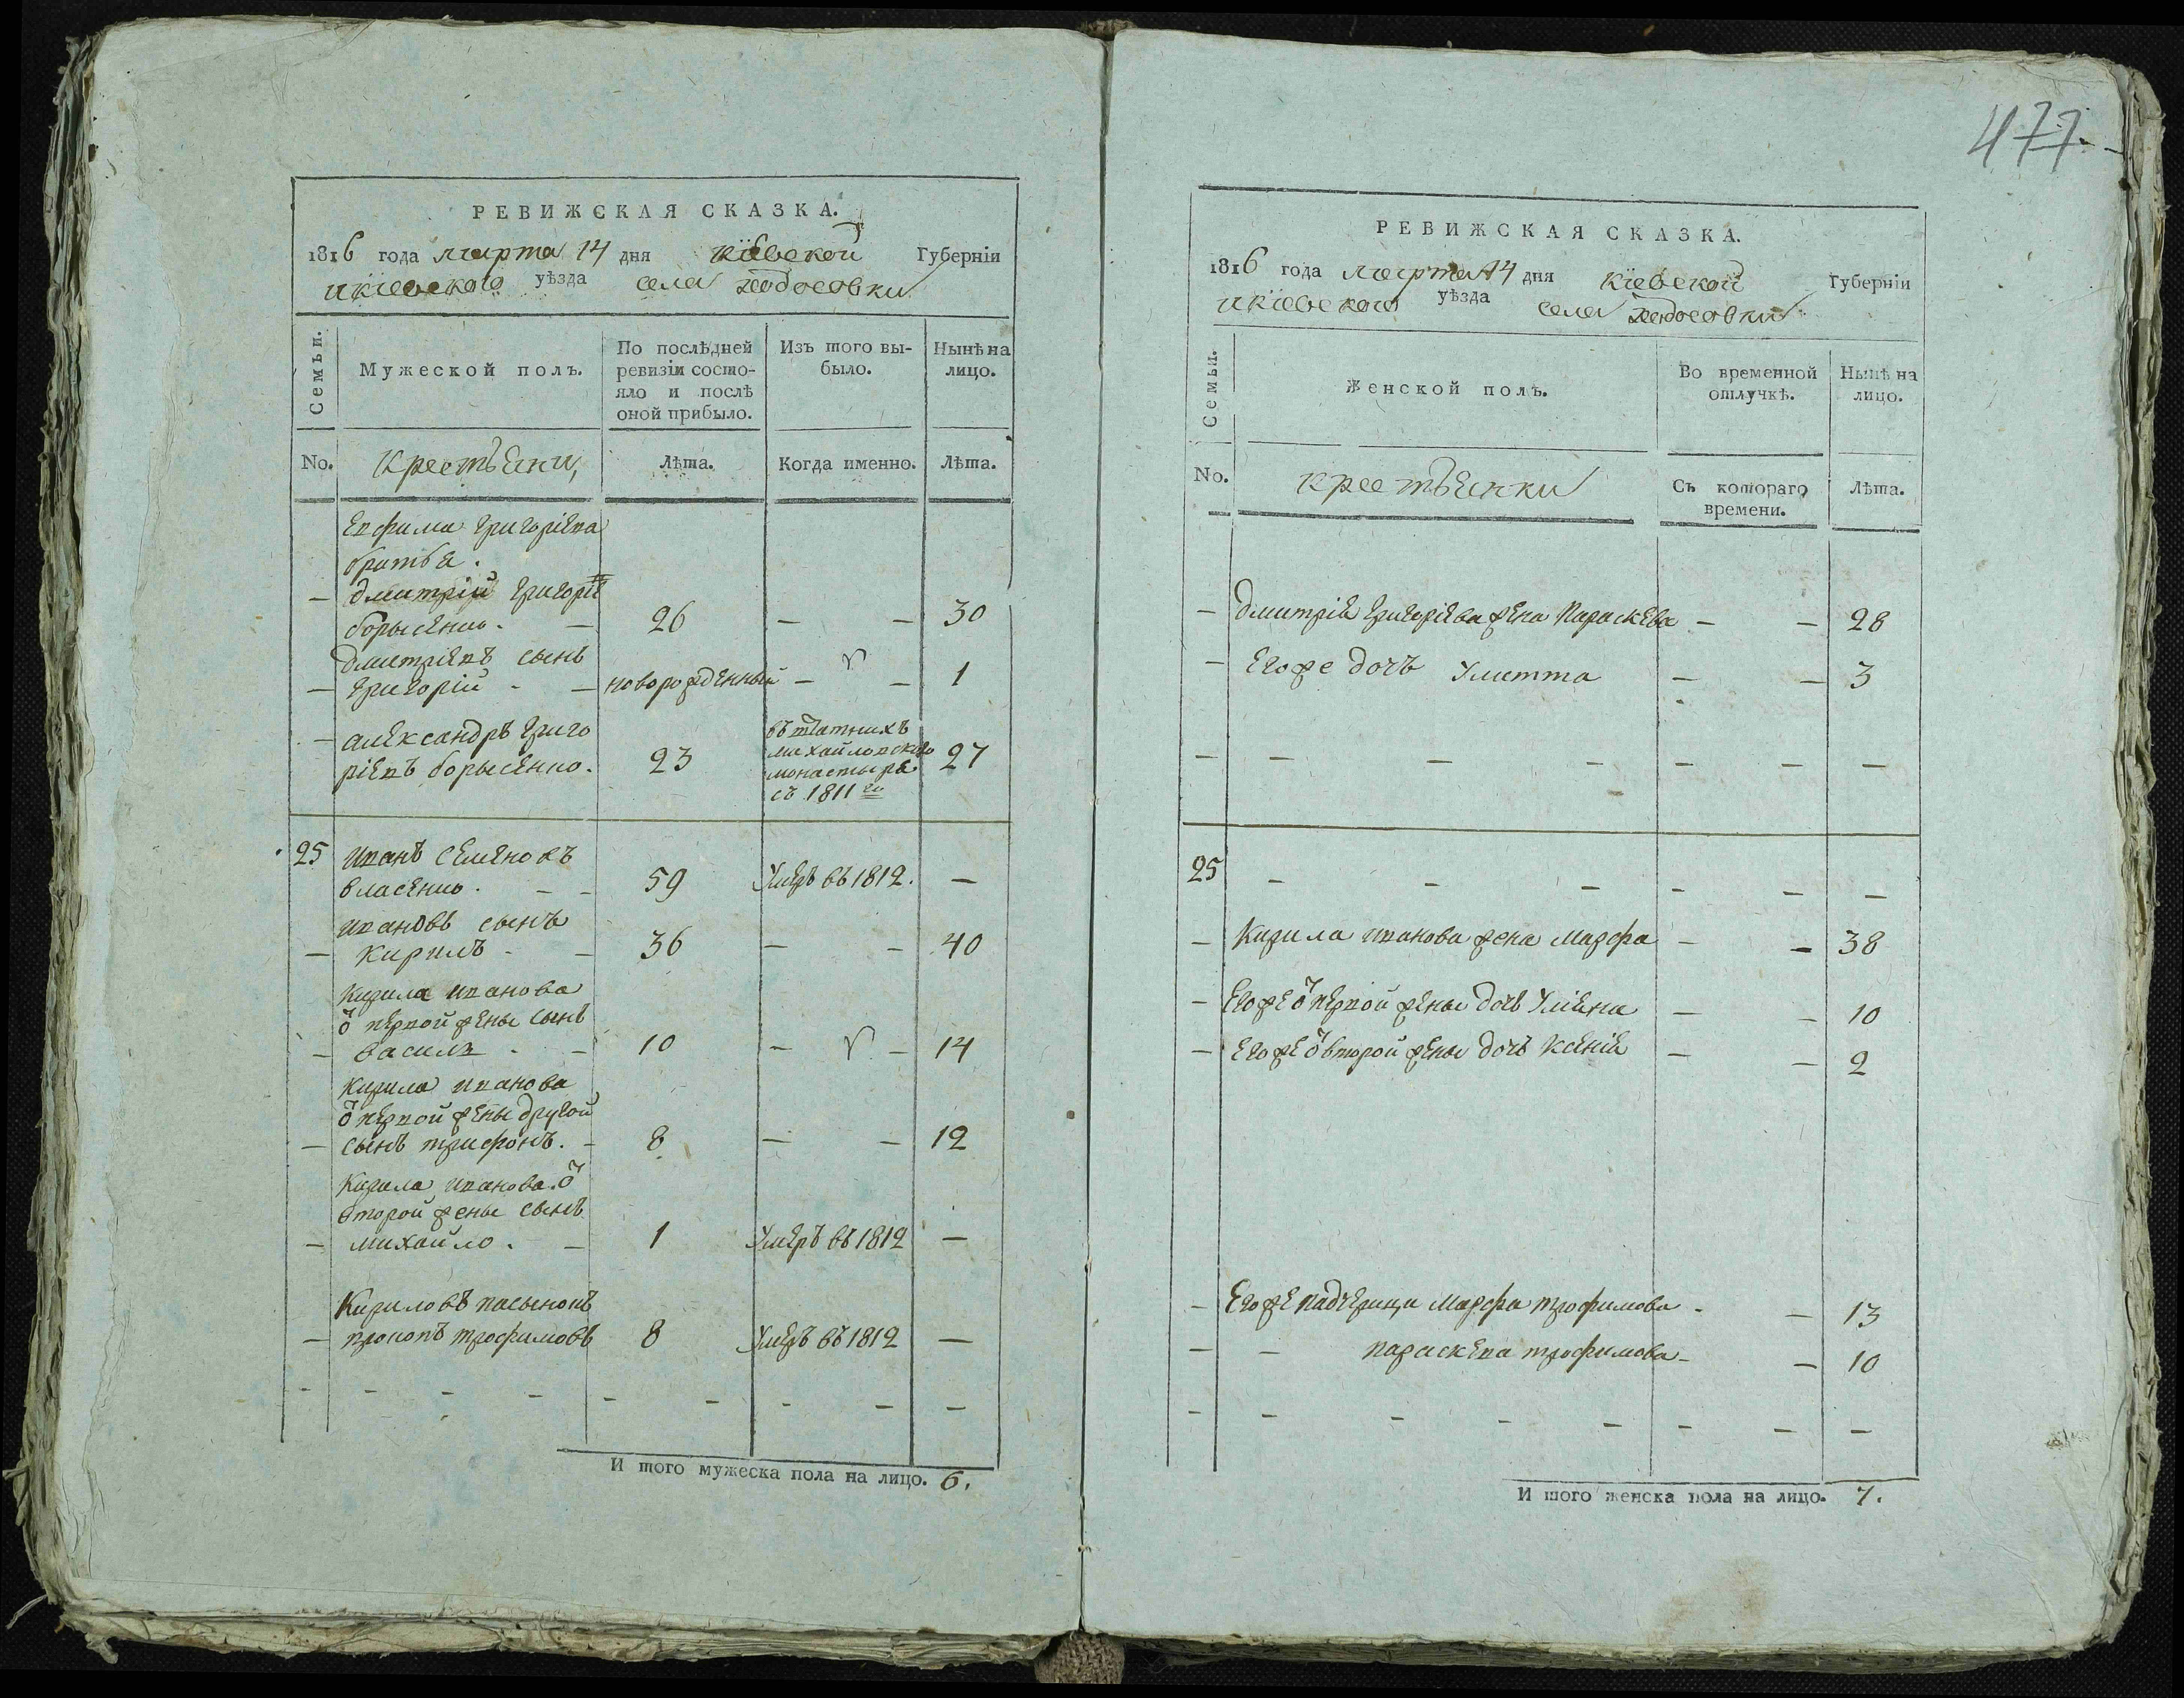 477.
РЕВИЖСКАЯ СКАЗКА.
1816 года марта 14 дня Кіевской Губерніи
и кіевского уѣзда села Ходосовки
Семьи.
Мужеской полъ.
По послѣдней
ревизіи состо-
яло и послѣ
оной прибыло.
Изъ того вы-
было.
Нынѣ на
лицо.
No.
Крестьяни,
Лѣта.
Когда именно.
Лѣта.
Евфима григоріева
братья.
— дмитрій григоріе
борысенко. — 26 — — 30
дмитріевъ сынъ
— григорій - — новорожденный — — 1
— александръ григо
ріевъ борысенко. 23 27
въ штатнихъ
михайловского
монастыря
съ 1811 го
25 иванъ семеновъ
власенко. — — 59 Умеръ въ 1812. —
ивановъ сынъ
— кирилъ - — 36 — — 40
кирила иванова
ѿ первой жены сынъ
— василь - — 10 — — 14
кирила иванова
ѿ первой жены другой
— сынъ трифонъ. — 8 — — 12
кирила иванова ѿ
второй жены сынъ
— михайло. — 1 Умеръ въ 1812 —
Кириловъ пасынокъ
— прокопъ трофимовъ 8 Умеръ въ 1812 —
- - - - - - - - -
И того мужеска пола на лицо. 6.
РЕВИЖСКАЯ СКАЗКА.
1816 года марта 14 дня Кіевской Губерніи
и кіевского уѣзда села Ходосовки
Семьи.
Женской полъ.
Во временной
отлучкѣ.
Нынѣ на
лицо.
No.
крестьянки
Съ котораго
времени.
Лѣта.
— дмитрія григоріева жена Параскева — — 28
— Егоже дочъ Улитта — — 3
— — — — — — —
25 — — — — — —
— Кирила иванова жена Марфа — — 38
— Егоже ѿ первой жены дочъ Уліяна — — 10
— Егоже ѿ второй жены дочъ Ксенія — — 2
— Егоже падчерица Марфа трофимова - — 13
— — параскева трофимова — — 10
- - - - - - - -
И того женска пола на лицо. 7.